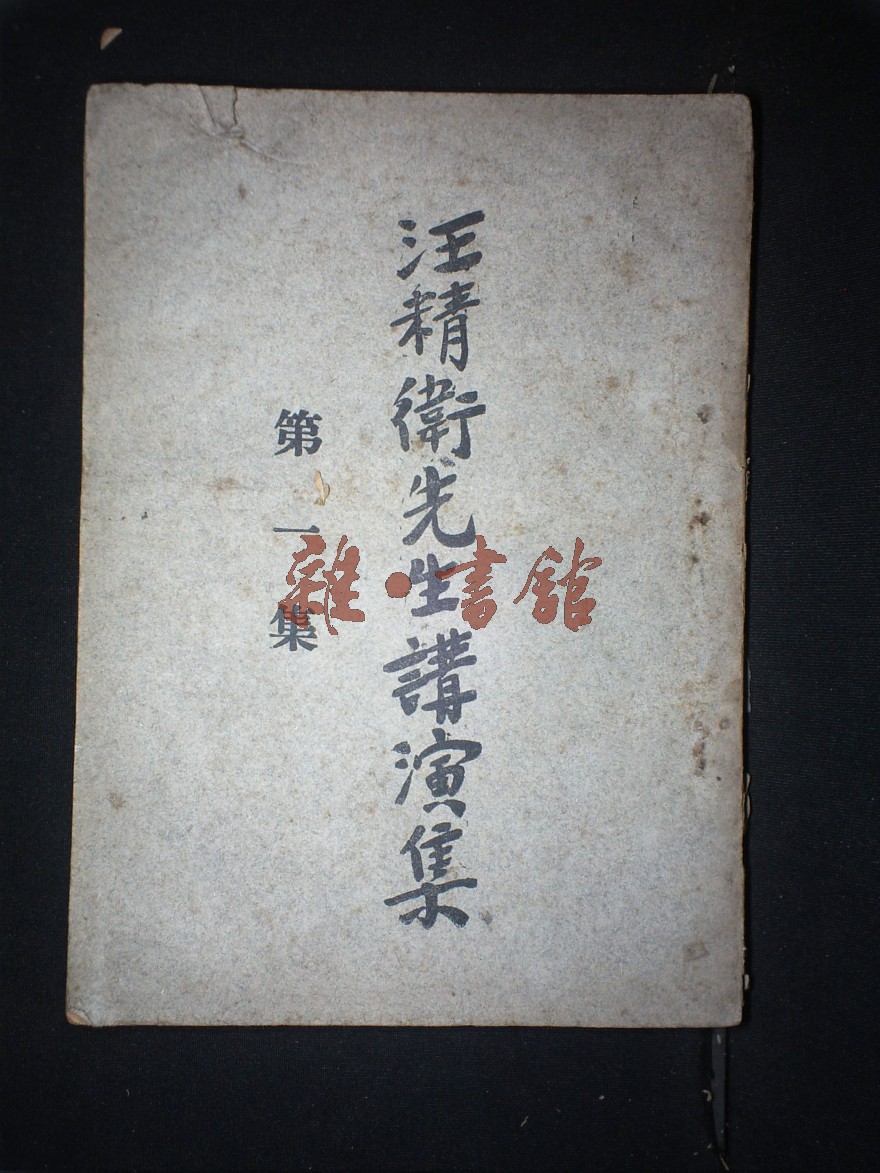 汪精衛先生講演集
第一集
雜·書館